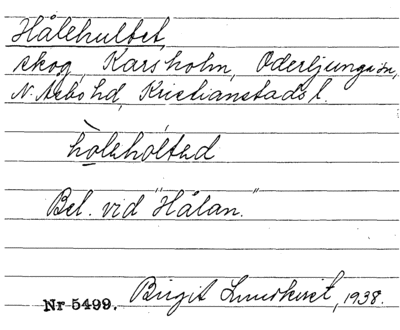 Hålehultet,
skog, Karsholm, Oderljunga sn,
N. Åsbo hd, Kristianstads l.
hòleholted
Bel. vid "Hålan."
Nr 5499. Birgit Lundkvist, 1938.